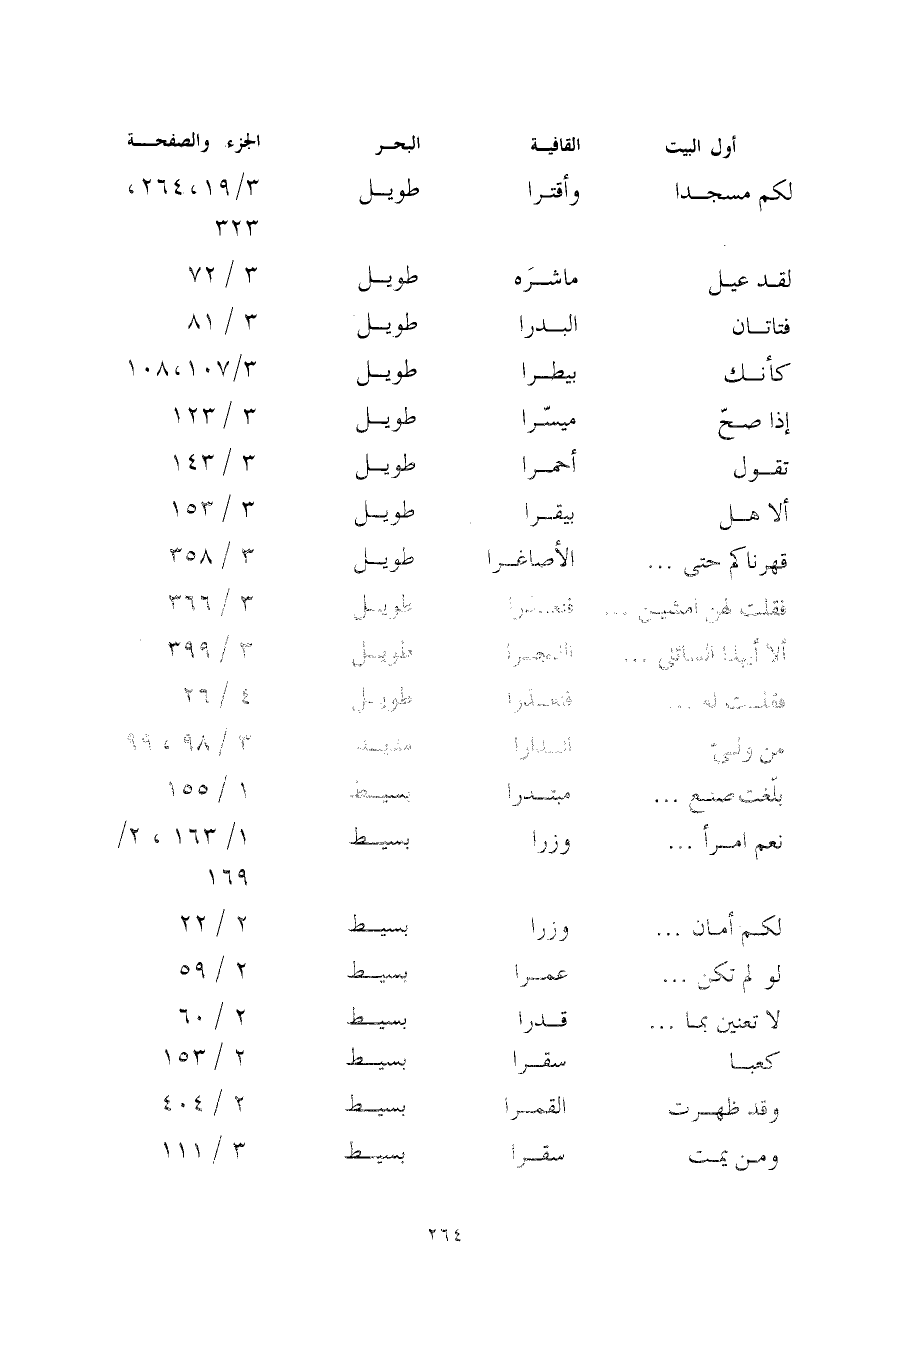 أول البيت القافية البحر الجزء والصفحة
لكم مسجدا وأقترا طويل ٣/١٩، ٢٦٤،
٣٢٣
لقد عيل ماشرَه طويل ٣ / ٧٢
فتاتان البدرا طويل ٣ / ٨١
كأنك بيطرا طويل ٣/١٠٧، ١٠٨
إذا صحّ ميسّرا طويل ٣ / ١٢٣
تقول أحمرا طويل ٣ / ١٤٣
ألا هل بيقرا طويل ٣ / ١٥٣
قهرناكم حتى ... الأصاغرا طويل ٣ / ٣٥٨
فقلت لهن امشين ... طويل ٣ / ٣٦٦
ألا أيهذا السائلي ... طويل ٣ / ٣٩٩
فقلت له ... فنعذرا طويل ٤ / ٢٦
من وليّ ٣ / ٩٨ ، ٩٩
بلّغت صنع ... مبتدرا بسيط ١ / ١٥٥
نعم امرأ ... وزرا بسيط ١/ ١٦٣ ، ٢/
١٦٩
لكم أمان ... وزرا بسيط ٢ / ٢٢
لو لم تكن ... عمرا بسيط ٢ / ٥٩
لا تعنين بما ... قدرا بسيط ٢ / ٦٠
كعبا سقرا بسيط ٢ / ١٥٣
وقد ظهرت القمرا بسيط ٢ / ٤٠٤
ومن يمت سقرا بسيط ٣ / ١١١
٢٦٤